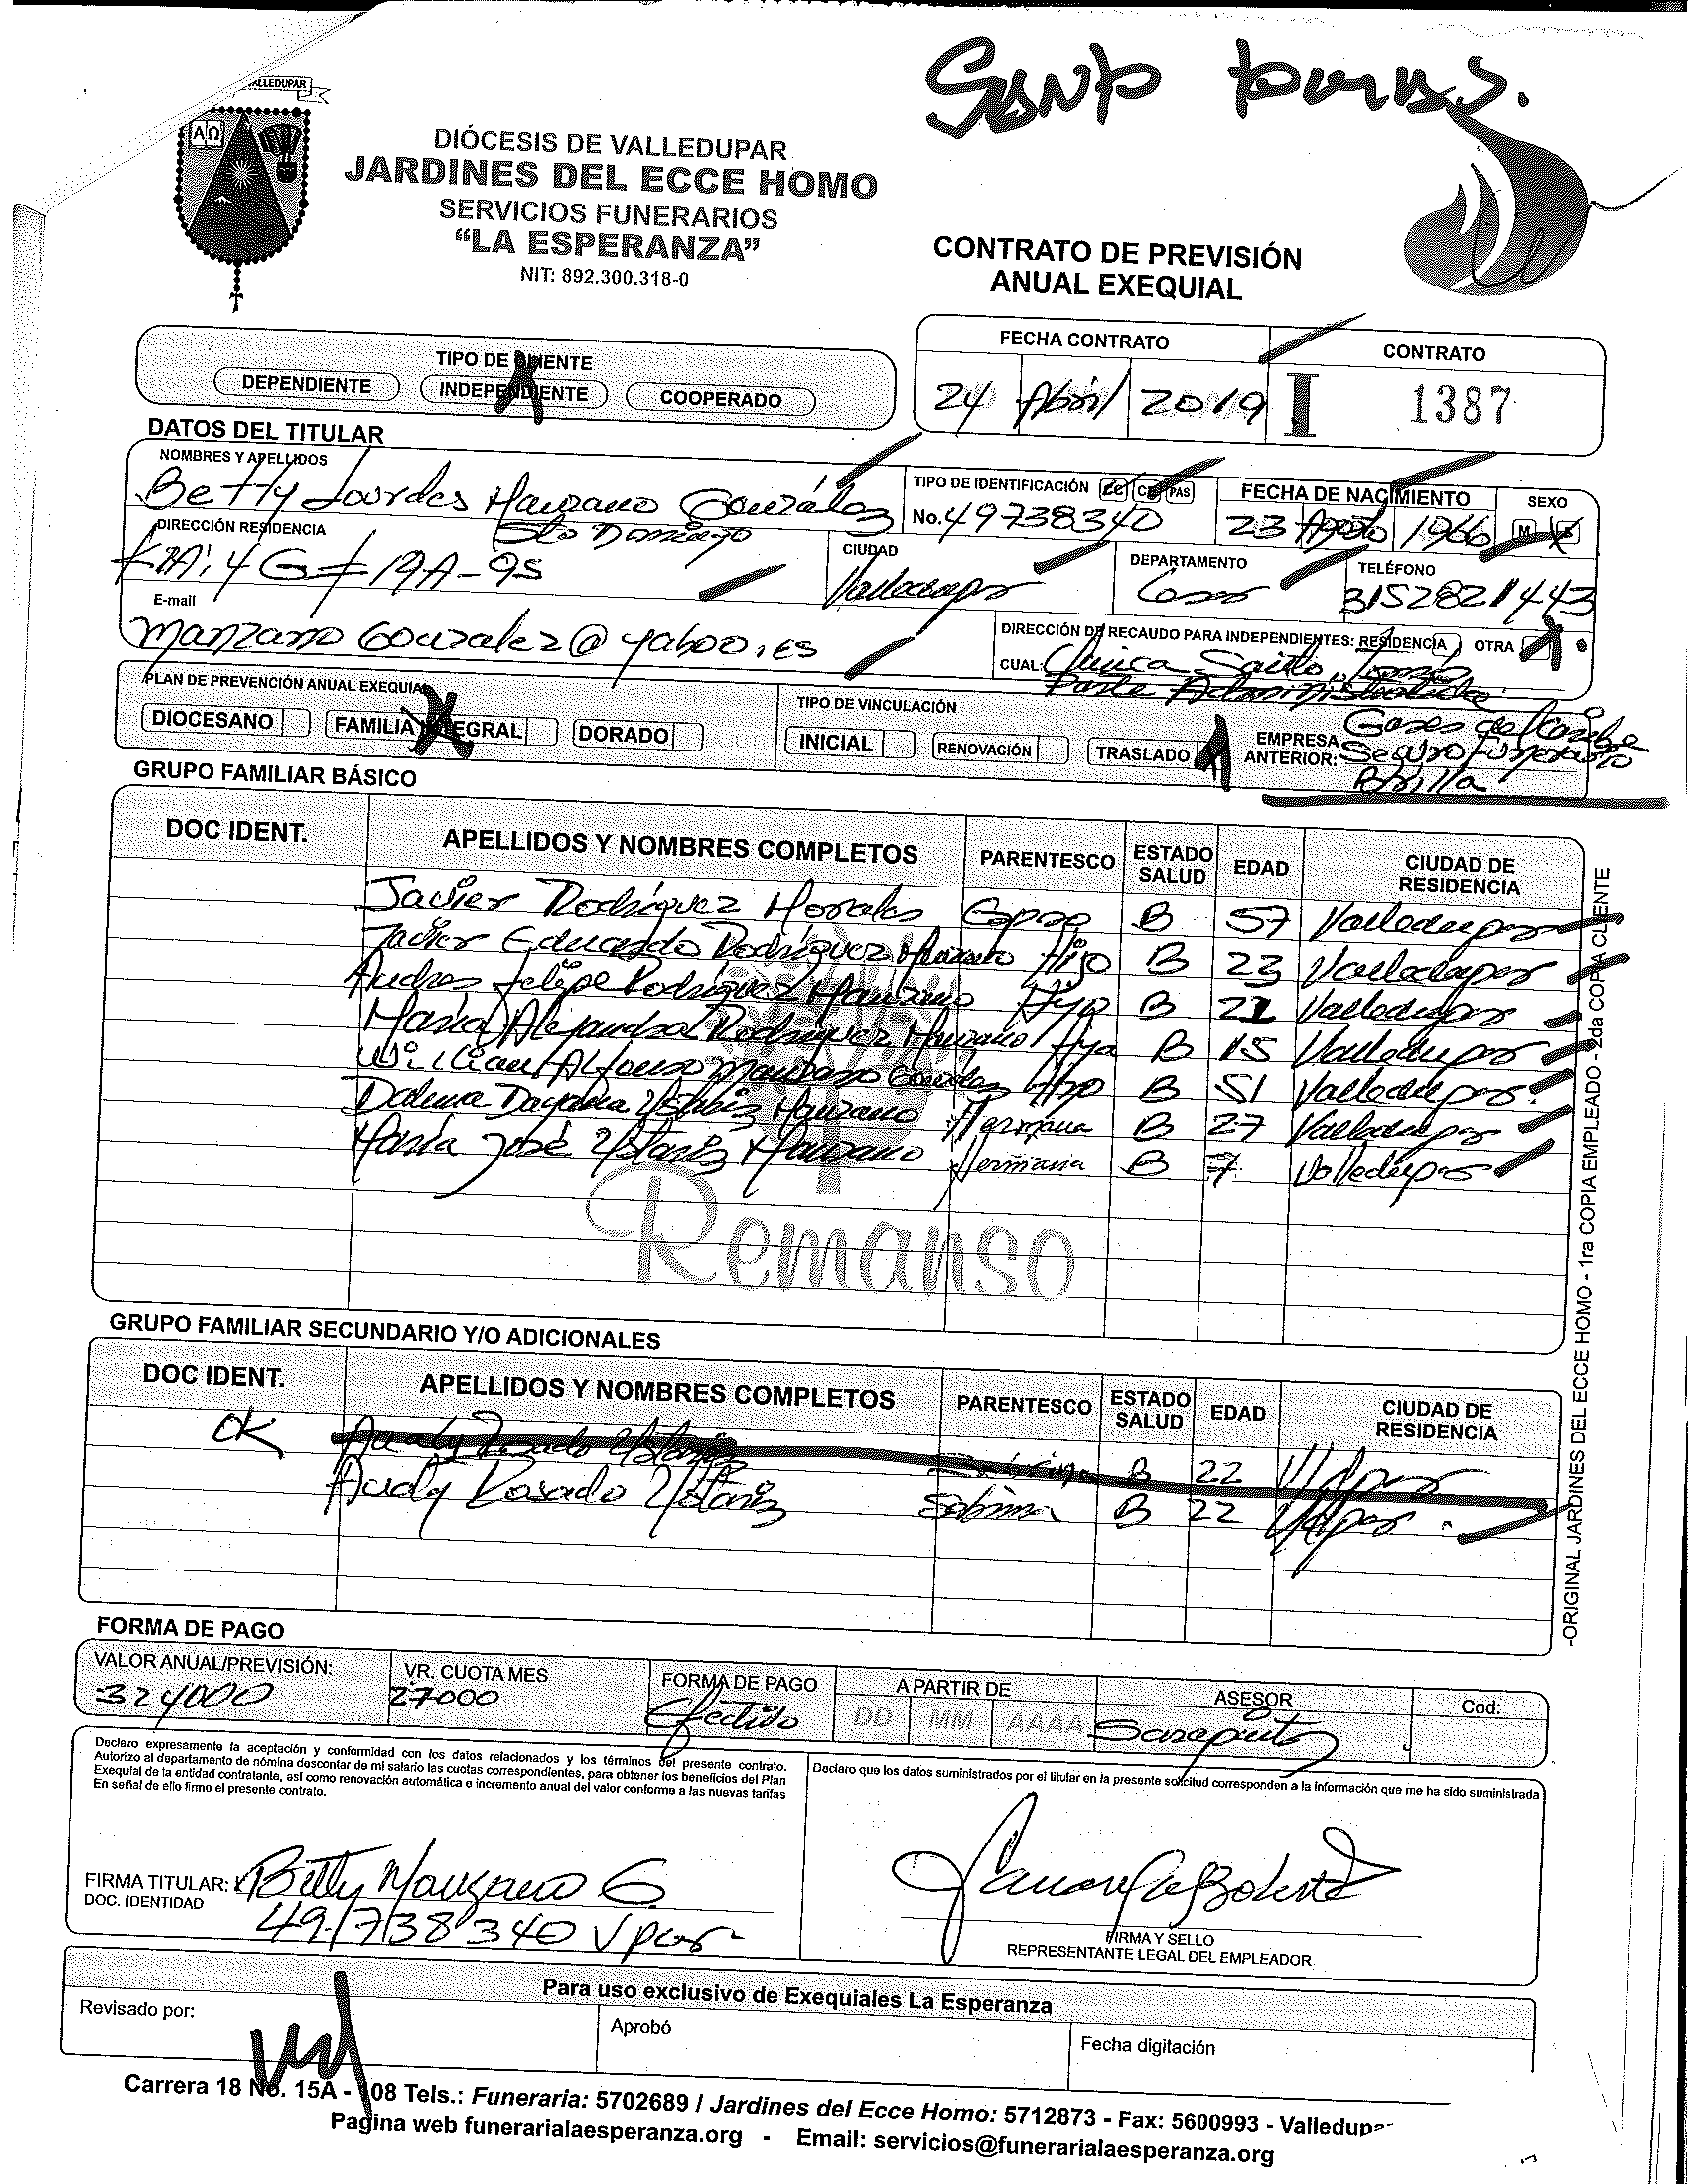 Santo Tomas.
VALLEDUPAR
DIÓCESIS DE VALLEDUPAR
JARDINES DEL ECCE HOMO
SERVICIOS FUNERARIOS
"LA ESPERANZA"
NIT: 892.300.318-0
CONTRATO DE PREVISIÓN
ANUAL EXEQUIAL
TIPO DE CLIENTE
DEPENDIENTE INDEPENDIENTE COOPERADO
FECHA CONTRATO CONTRATO
24 Abril 2019 I 1387
DATOS DEL TITULAR
NOMBRES Y APELLIDOS
Betty Lourdes Manzano González
TIPO DE IDENTIFICACIÓN CC CE PAS
No. 49738340
FECHA DE NACIMIENTO
23 Agosto 1966
SEXO
M F
DIRECCIÓN RESIDENCIA
Sto Domingo
KRA: 4 G # 19A-95
CIUDAD
Valledupar
DEPARTAMENTO
Cesar
TELÉFONO
3152821443
E-mail
manzano Gonzalez@yahoo.es
DIRECCIÓN DE RECAUDO PARA INDEPENDIENTES: RESIDENCIA OTRA X
CUAL: Clínica Santo Tomás
Parte Administrativa
PLAN DE PREVENCIÓN ANUAL EXEQUIAL
DIOCESANO FAMILIA INTEGRAL DORADO
TIPO DE VINCULACIÓN
INICIAL RENOVACIÓN TRASLADO X
EMPRESA ANTERIOR: Gases del Caribe
Seguro funerario
Brilla
GRUPO FAMILIAR BÁSICO
DOC IDENT. APELLIDOS Y NOMBRES COMPLETOS PARENTESCO ESTADO SALUD EDAD CIUDAD DE RESIDENCIA
Javier Rodríguez Morales Esposo B 57 Valledupar
Javier Eduardo Rodríguez Manzano Hijo B 23 Valledupar
Andres Felipe Rodríguez Manzano Hijo B 21 Valledupar
María Alejandra Rodríguez Manzano Hija B 15 Valledupar
William Alfonso Manzano González B 51 Valledupar
Dayana Ustariz Manzano Hermana B 27 Valledupar
María José Ustariz Manzano Hermana B 7 Valledupar
Remanso
GRUPO FAMILIAR SECUNDARIO Y/O ADICIONALES
DOC IDENT. APELLIDOS Y NOMBRES COMPLETOS PARENTESCO ESTADO SALUD EDAD CIUDAD DE RESIDENCIA
OK B 22 V/dpar
Rosado Ustariz Sobrina B 22 V/dpar
-ORIGINAL JARDINES DEL ECCE HOMO - 1ra COPIA EMPLEADO - 2da COPIA CLIENTE
FORMA DE PAGO
VALOR ANUAL/PREVISIÓN: VR. CUOTA MES FORMA DE PAGO A PARTIR DE ASESOR Cod:
324000 27000 Efectivo DD MM AAAA
Declaro expresamente la aceptación y conformidad con los datos relacionados y los términos del presente contrato.
Autorizo al departamento de nómina descontar de mi salario las cuotas correspondientes, para obtener los beneficios del Plan
Exequial de la entidad contratante, así como renovación automática e incremento anual del valor conforme a las nuevas tarifas
En señal de ello firmo el presente contrato.
Declaro que los datos suministrados por el titular en la presente solicitud corresponden a la información que me ha sido suministrada
FIRMA TITULAR: x Betty Manzano G.
DOC. IDENTIDAD 49.738340 Vpar
FIRMA Y SELLO
REPRESENTANTE LEGAL DEL EMPLEADOR
Para uso exclusivo de Exequiales La Esperanza
Revisado por: Aprobó Fecha digitación
Carrera 18 No. 15A - 108 Tels.: Funeraria: 5702689 / Jardines del Ecce Homo: 5712873 - Fax: 5600993 - Valledupar
Pagina web funerarialaesperanza.org - Email: servicios@funerarialaesperanza.org